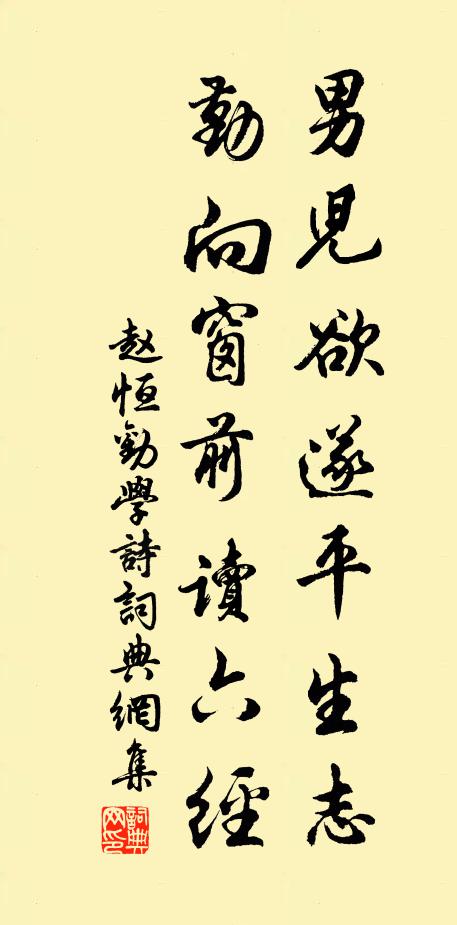 男兒欲遂平生志
勤向窗前讀六經
赵恒勸學詩詞典網集
詞典網印